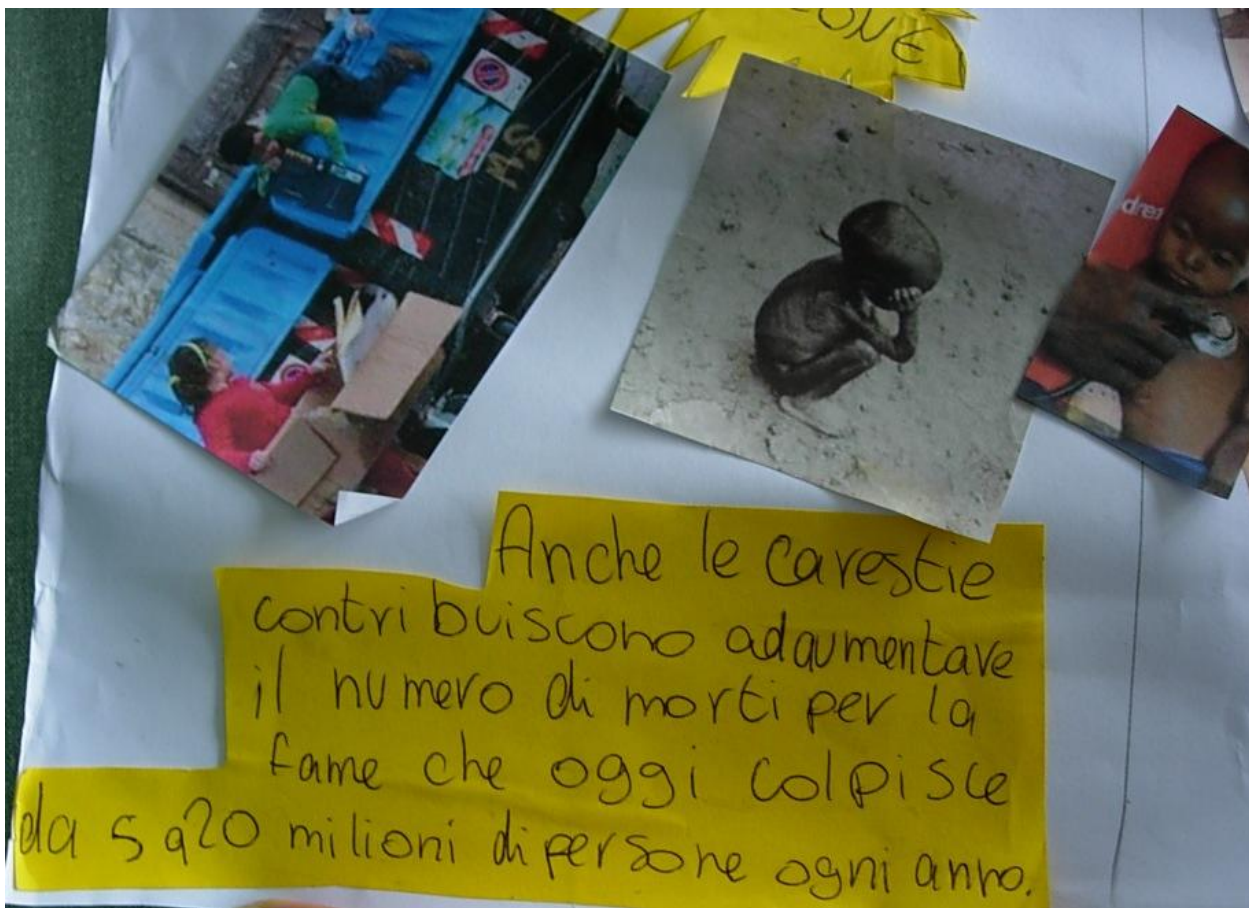 ONE
dren
Anche le carestie
contribuiscono ad aumentare
il numero di morti per la
fame che oggi colpisce
da 5 a 20 milioni di persone ogni anno.